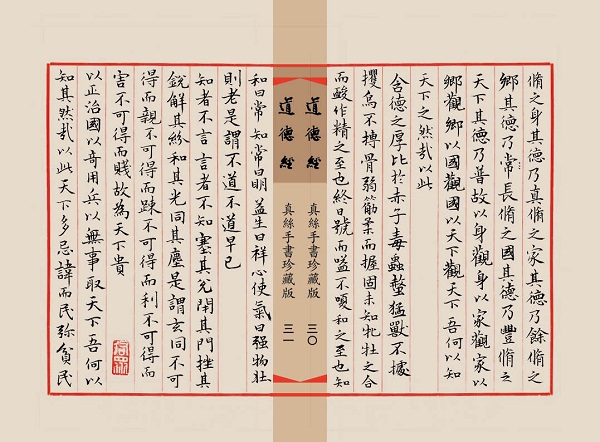 脩之身其德乃真脩之家其德乃餘脩之
鄉其德乃常長脩之國其德乃豐脩之
天下其德乃普故以身觀身以家觀家以
鄉觀鄉以國觀國以天下觀天下吾何以知
天下之然哉以此
含德之厚比於赤子毒蟲螫猛獸不據
攫鳥不搏骨弱筋柔而握固未知牝牡之合
而朘作精之至也終日號而嗌不嗄和之至也知
道德經 真絲手書珍藏版 三〇
道德經 真絲手書珍藏版 三一
和曰常知常曰明益生曰祥心使氣曰强物壯
則老是謂不道不道早已
知者不言言者不知塞其兌閉其門挫其
銳解其紛和其光同其塵是謂玄同不可
得而親不可得而踈不可得而利不可得而
害不可得而賤故為天下貴
以正治國以奇用兵以無事取天下吾何以
知其然哉以此天下多忌諱而民弥貧民